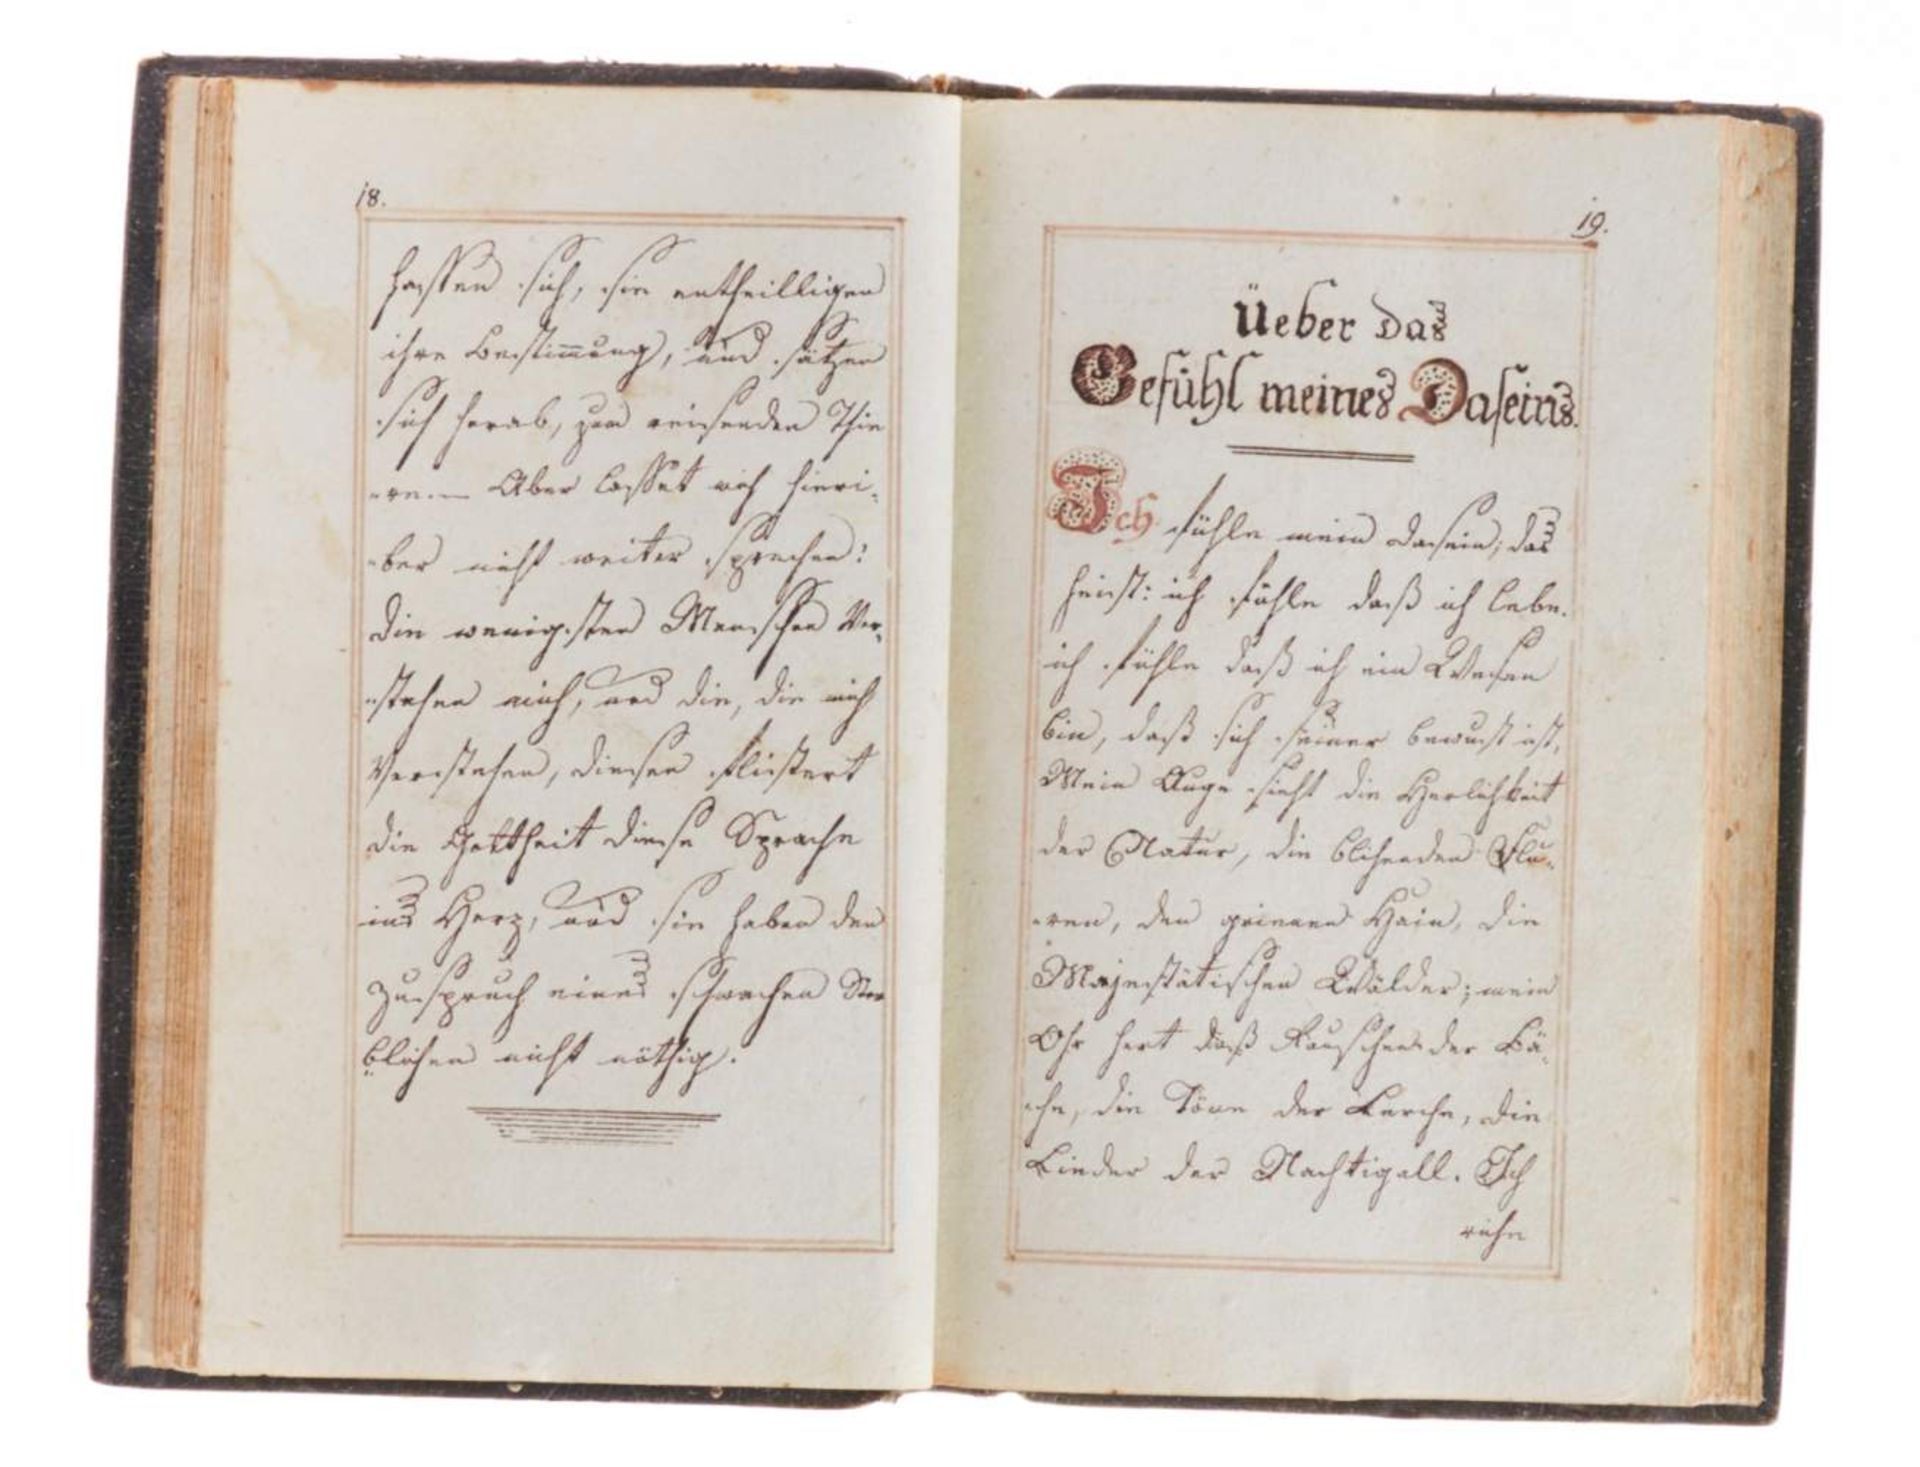 18.
hassen sich, sie entheilligen
ihre Bestim̅ung, und sätzen
sich herab, zun reisenden Thie
-ren.— Aber lasset mich hieri-
-ber nicht weiter sprechen:
die wenigsten Menschen Ver-
-stehen mich, und die, die mich
Verstehen, diesen flistert
die Gottheit diese Sprache
ins Herz, und sie haben den
Zuspruch eines schwachen Ster
blichen nicht nöthig.
19.
Üeber das
Gefühl meines Daseins.
Ich fühle mein Dasein; das
heist: ich fühle daß ich lebe.
ich fühle daß ich ein Wesen
bin, daß sich seiner bewust ist,
Mein Auge sieht die Herlichkeit
der Natur, die blihenden Flu-
-ren, den grienen Hain, die
Majestätischen Wälder; mein
Ohr hert daß Rauschen der Bä-
-che, die Töne der Lerche, die
Lieder der Nachtigall. Ich
riche